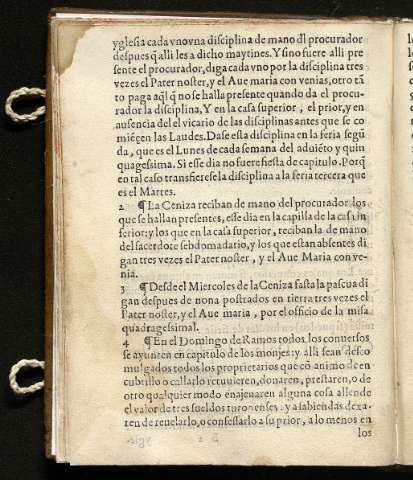 yglesia cada vno vna disciplina de mano dl procurador
despues q̃ alli les a dicho maytines. Y si no fuere alli pre
sente el procurador, diga cada vno por la disciplina tres
vezes el Pater noster, y el Aue maria con venias, otro tã
to paga aq̃l q̃ no se halla presente quando da el procu-
rador la disciplina, Y en la casa superior, el prior, y en
ausencia del el vicario de las disciplinas antes que se co
miẽçen las Laudes. Dase esta disciplina en la feria segũ
da, que es el Lunes de cada semana del aduiẽto y quin
quagessima. Si esse dia no fuere fiesta de capitulo. Porq̃
en tal caso transfierese la disciplina a la feria tercera que
es el Martes.
2 ¶ La Ceniza reciban de mano del procurador los
que se hallan presentes, esse dia en la capilla de la casa in
ferior: y los que en la casa superior, reciban la de mano
del sacerdote sebdomadario, y los que estan absentes di
gan tres vezes el Pater noster, y el Aue Maria con ve-
nia.
3 ¶ Desde el Miercoles de la Ceniza fasta la pascua di
gan despues de nona postrados en tierra tres vezes el
Pater noster, y el Aue maria, por el officio de la missa
quadragessimal.
4 ¶ En el Domingo de Ramos todos los conuersos
se ayunten en capitulo de los monjes: y alli sean desco
mulgados todos los proprietarios que cõ animo de en
cubrillo o callarlo retuuieren, donaren, prestaren, o de
otro qualquier modo enajenaren alguna cosa allende
el valor de tres sueldos turonenses: y a sabiendas dexa-
ren de reuelarlo, o confessarlo a su prior, a lo menos en
los